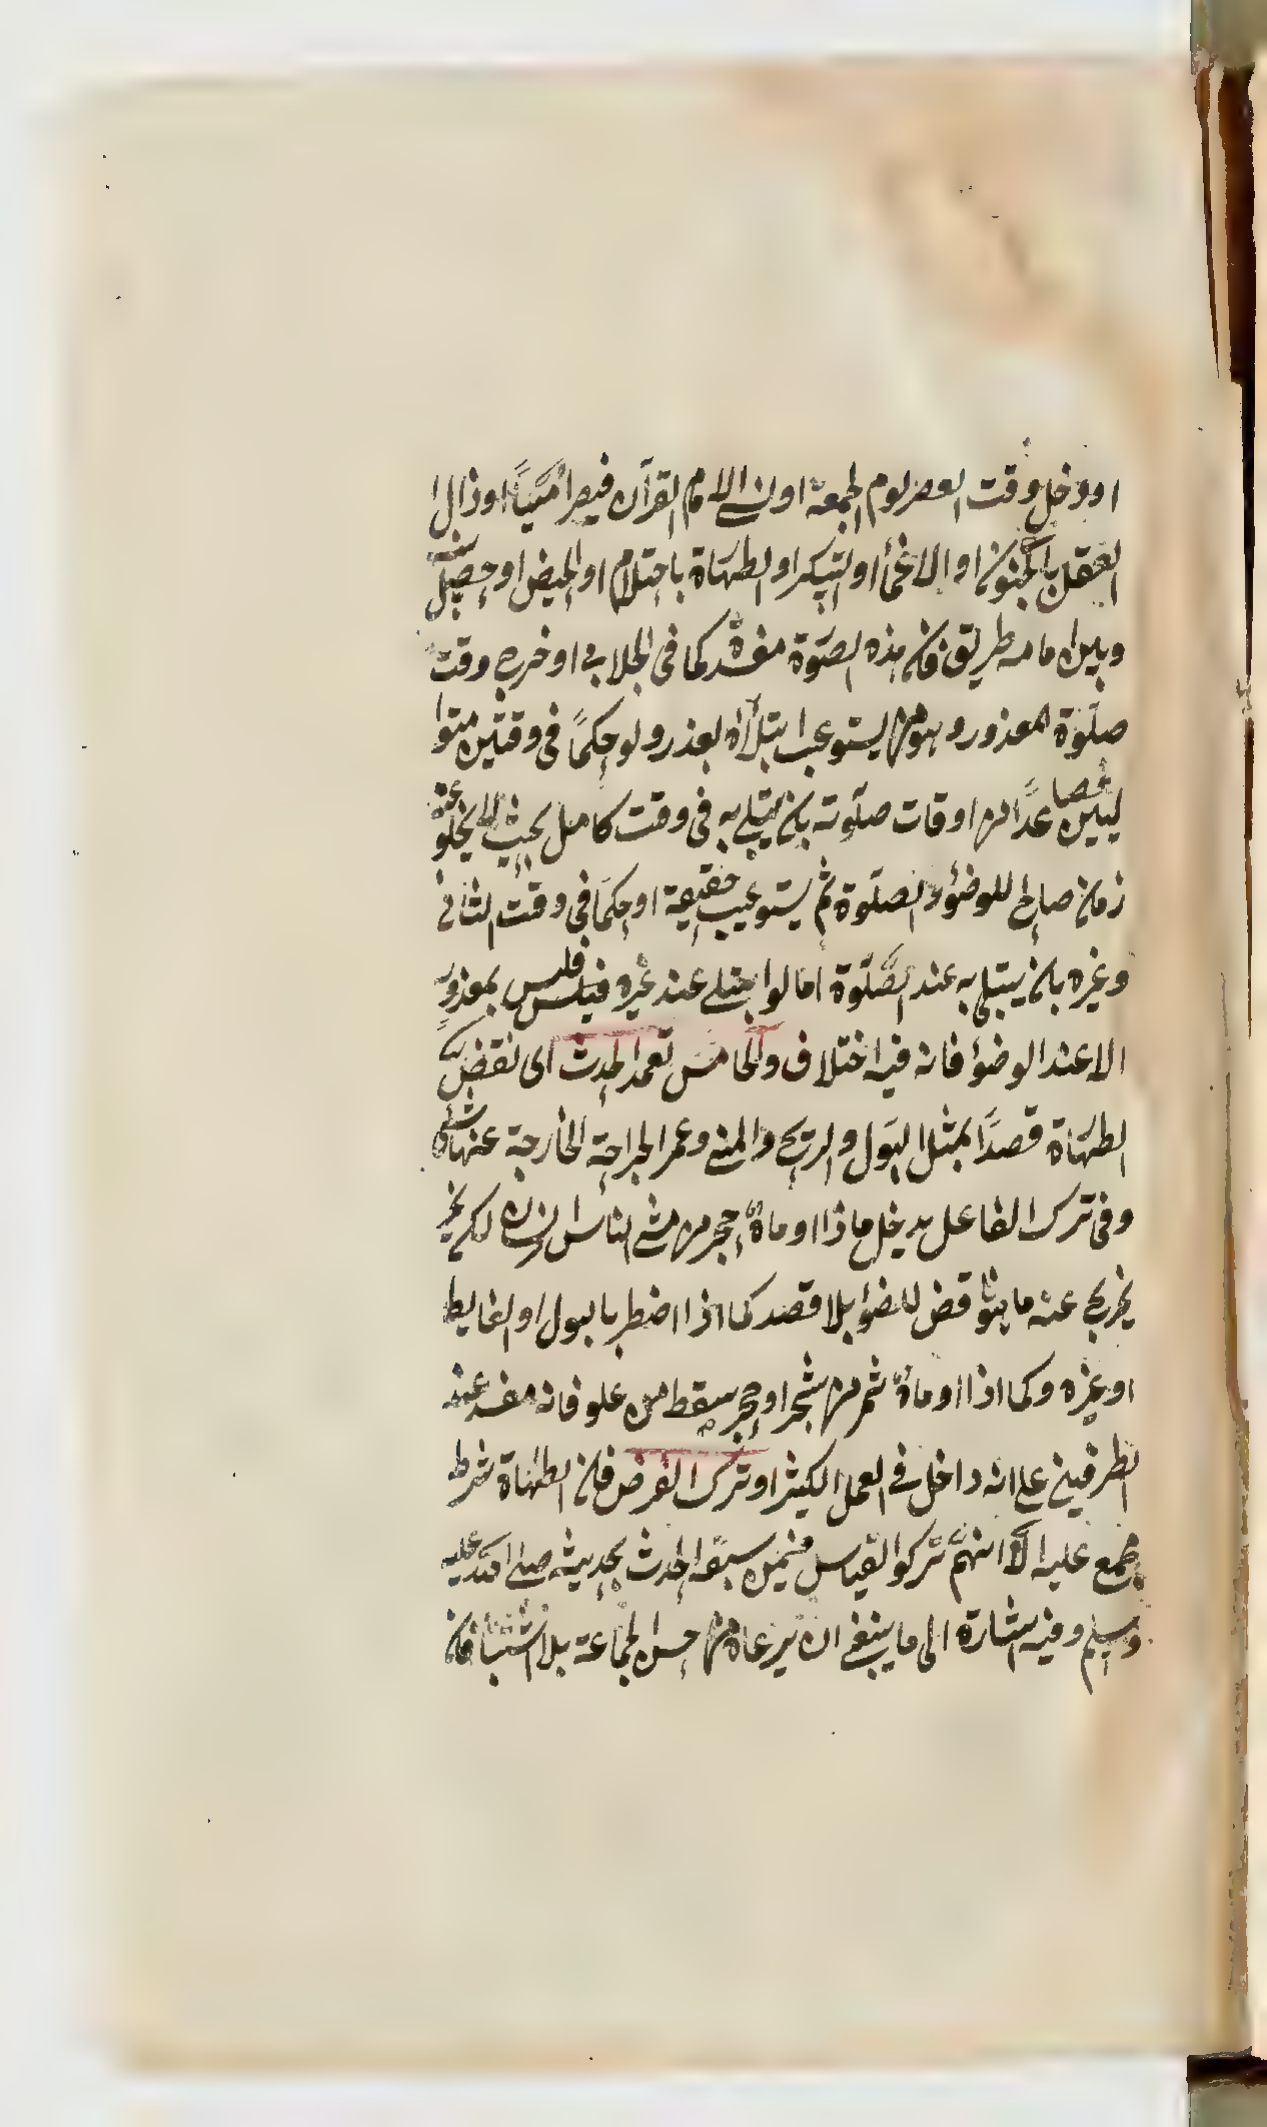 او دخل وقت العصر يوم الجمعة او نسى الامام القرآن فيصير اميّاً او زال
العقل بالجنون او الاغماء او السكر او الطهارة باحتلام او الحيض او حصل بينه
وبين امامه طريق فان هذه الصلوة مفسدة كما في الجلابي او خروج وقت
صلوة المعذور وهو من يستوعب ابتلاؤه بعذر ولو حكماً في وقتين متوا
ليين فصاعداً من اوقات صلوته بان يبتلى به في وقت كامل بحيث لا يخلو عنه
زمان صالح للوضوء والصلوة ثم يستوعب حقيقة او حكماً في وقت الثاني
وغيره بان يبتلى به عند الصلوة اما لو ابتلى عند غيره فليس بمعذور
الا عند الوضوء فانه فيه اختلاف والخامس تعمد الحدث اى نقض
الطهارة قصداً بمثل البول والريح والمنى وعمر الجراحة الخارجة عنها شئ
وفي ترك الفاعل يدخل ما اذا اوماه حجر من مشى الناس
يخرج عنه ما ينوقض للضوء بلا قصد كما اذا اضطر بالبول او الغايط
او غيره وكما اذا اوماه ثمر من شجر او حجر سقط من علو فانه مفسد عند
الطرفين على انه داخل في العمل الكثير او ترك الفرض فان الطهارة شرط
اجمع عليه الا انهم تركوا القياس فيمن سبقه الحدث بحديثه صلى الله عليه
وسلم وفيه اشارة الى ما ينبغي ان يرعاه من حسن الجماعة بلا اشتباه فان